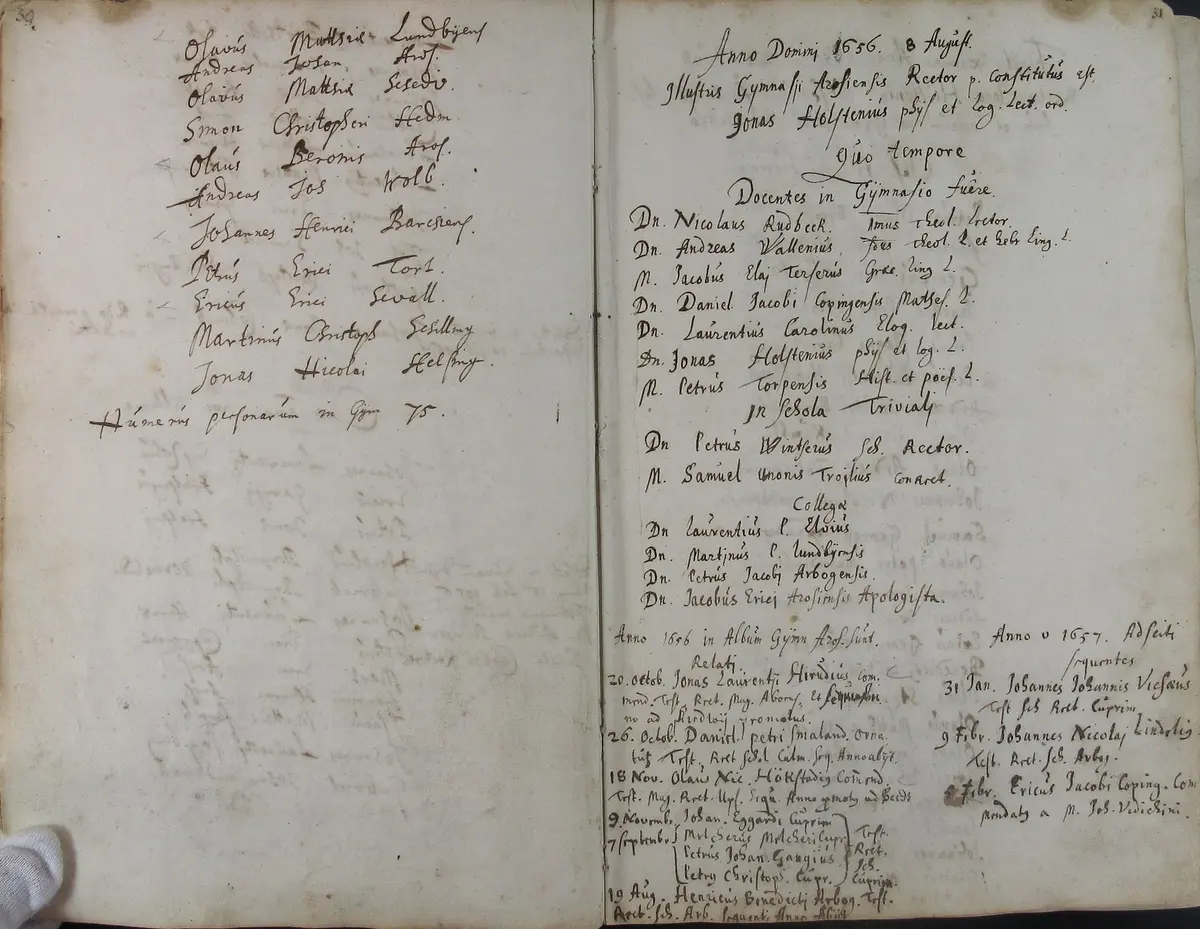 30.
Olavus Matthiæ Lundbyens
Andreas Johan Aros.
Olavus Matthiæ
Simon Christopheri Hedm
Olaus Beronis Aros.
Andreas Jos Wolb.
Johannes Henrici Barchens.
Petrus Erici Tort.
Ericus Erici Sevall.
Martinus Christoph Schilling
Jonas Nicolai Helsing.
Numerus personarum in Gÿm 75.
31
Anno Domini 1656. 8 August.
Illustris Gymnasij Arosiensis Rector p. constitutus est.
Jonas Holstenius phys et Log. Lect. ord.
Quo tempore
Docentes in Gÿmnasio fuêre.
Dn. Nicolaus Rudbeck. Imus theol. Lector
Dn. Andreas Wallenius theol. L. et hebr ling. L.
M. Jacobus Elaj Terserus Græc. ling L.
Dn. Daniel Jacobi Copingensis Mathes. L.
Dn. Laurentius Carolinus Eloq. lect.
Dn. Jonas Holstenius phys et log. L.
M. Petrus Torpensis Hist. et poës. L.
In Schola Trivialj
Dn Petrus Wintherus Sch. Rector.
M. Samuel Unonis Troilius Conrect.
Collegæ
Dn Laurentius L. Elvius
Dn. Martinus P. Lundbÿensis
Dn. Petrus Jacobj Arbogensis.
Dn. Jacobus Ericj Arosiensis Apologista.
Anno 1656 in Album Gÿmn Aros. sunt
Relatj
20. Octob. Jonas Laurentij Hirudius com
mend. Test. Rect. Mag. Aboens. et
no ad promotus.
26. Octob. Daniel petri Smaland. orna
tus Test. Rect Schol Calm. seq. Anno abijt.
18 Nov. Olaus Nic. Comend.
Test. Mag. Rect. Ups. Sequ. Anno
9. Novembr. Johan. Eggardi Cuprim
7 Septembr Melcherus Melcheri Cupr Test.
Petrus Johan. Gangius Rect.
Petrus Christoph. Cupr. Sch.
Cuprim.
19 Aug. Henricus Benedictj Arbog. Test.
Rect. Sch. Arb. sequenti Anno Abijt
Anno 1657. Adsciti
sequentes
31 Jan. Johannes Johannis
Test Sch Rect. Cuprim
9 Febr. Johannes Nicolaj
Test. Rect. Sch. Arbog.
Febr. Ericus Jacobi Coping. Com
mendat9 a M. Joh.